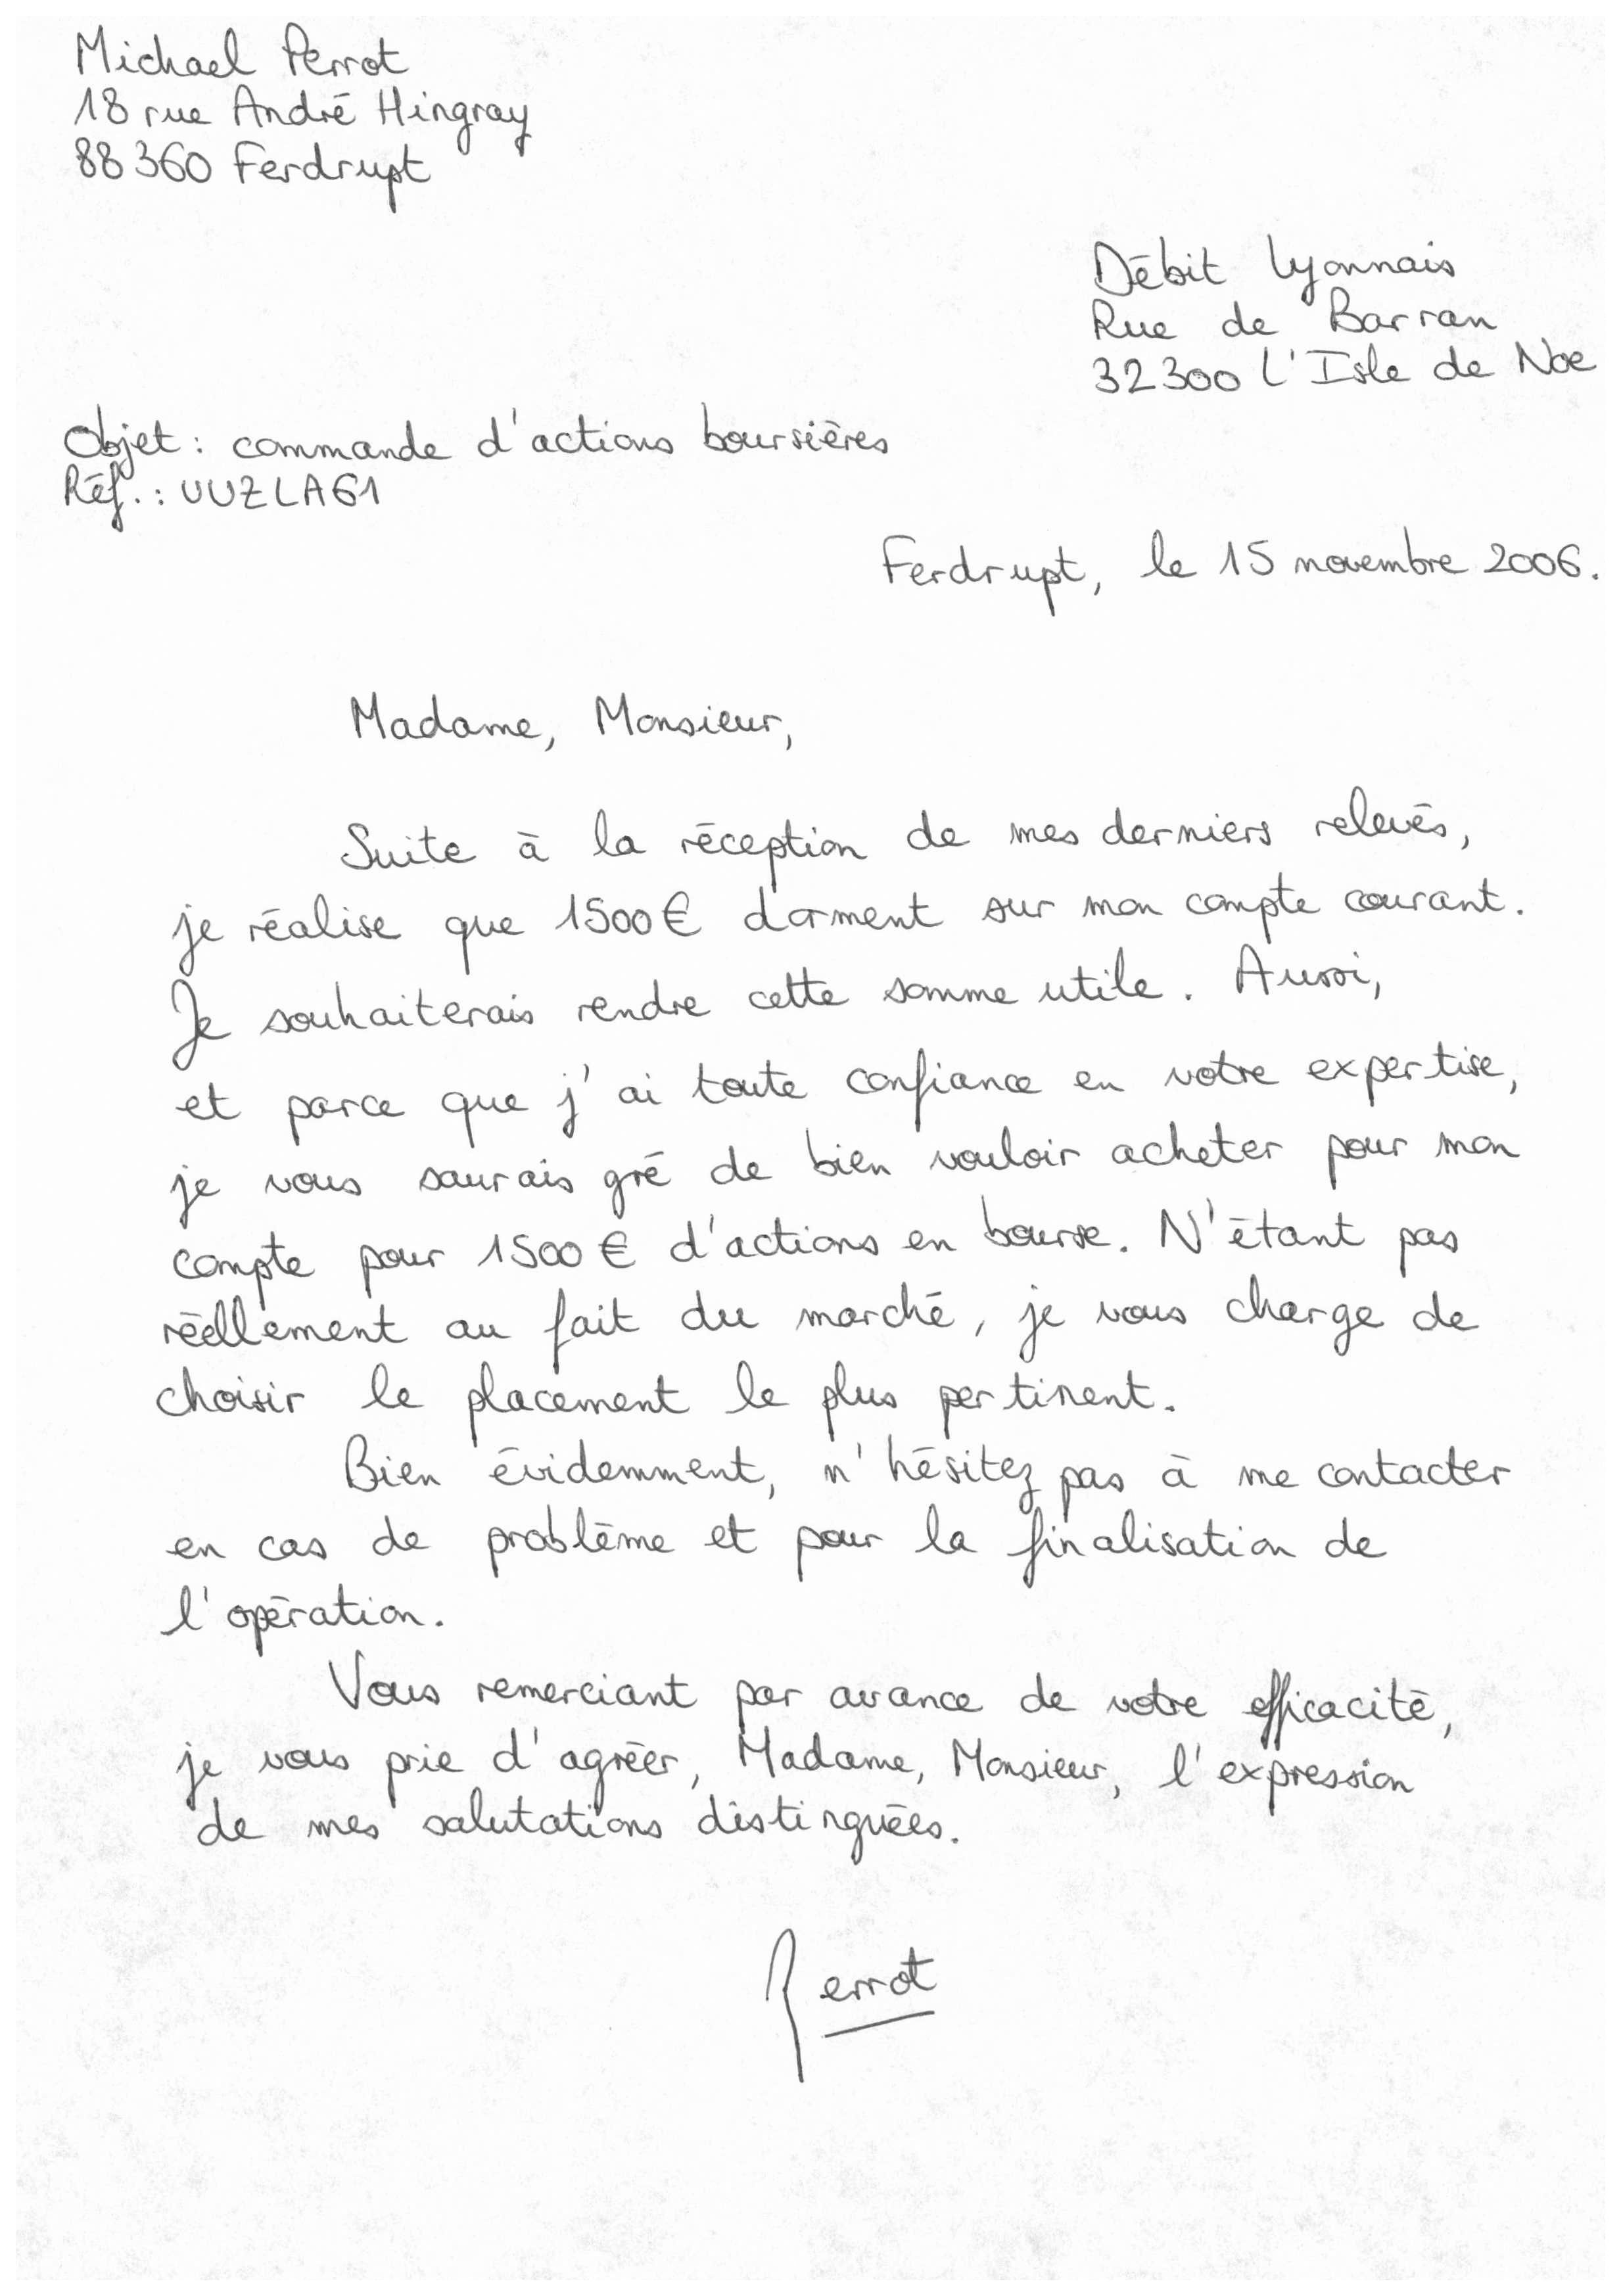 Michael Perrot
18 rue André Hingray
88360 Ferdrupt
Débit Lyonnais
Rue de Barran
32300 l'Isle de Noe
Objet : commande d'actions boursières
Réf. : UUZLA61
Ferdrupt, le 15 novembre 2006.
Madame, Monsieur,
Suite à la réception de mes derniers relevés,
je réalise que 1500€ dorment sur mon compte courant.
Je souhaiterais rendre cette somme utile. Aussi,
et parce que j'ai toute confiance en votre expertise,
je vous saurais gré de bien vouloir acheter pour mon
compte pour 1500€ d'actions en bourse. N'étant pas
réellement au fait du marché, je vous charge de
choisir le placement le plus pertinent.
Bien évidemment, n'hésitez pas à me contacter
en cas de problème et pour la finalisation de
l'opération.
Vous remerciant par avance de votre efficacité,
je vous prie d'agréer, Madame, Monsieur, l'expression
de mes salutations distinguées.
Perrot